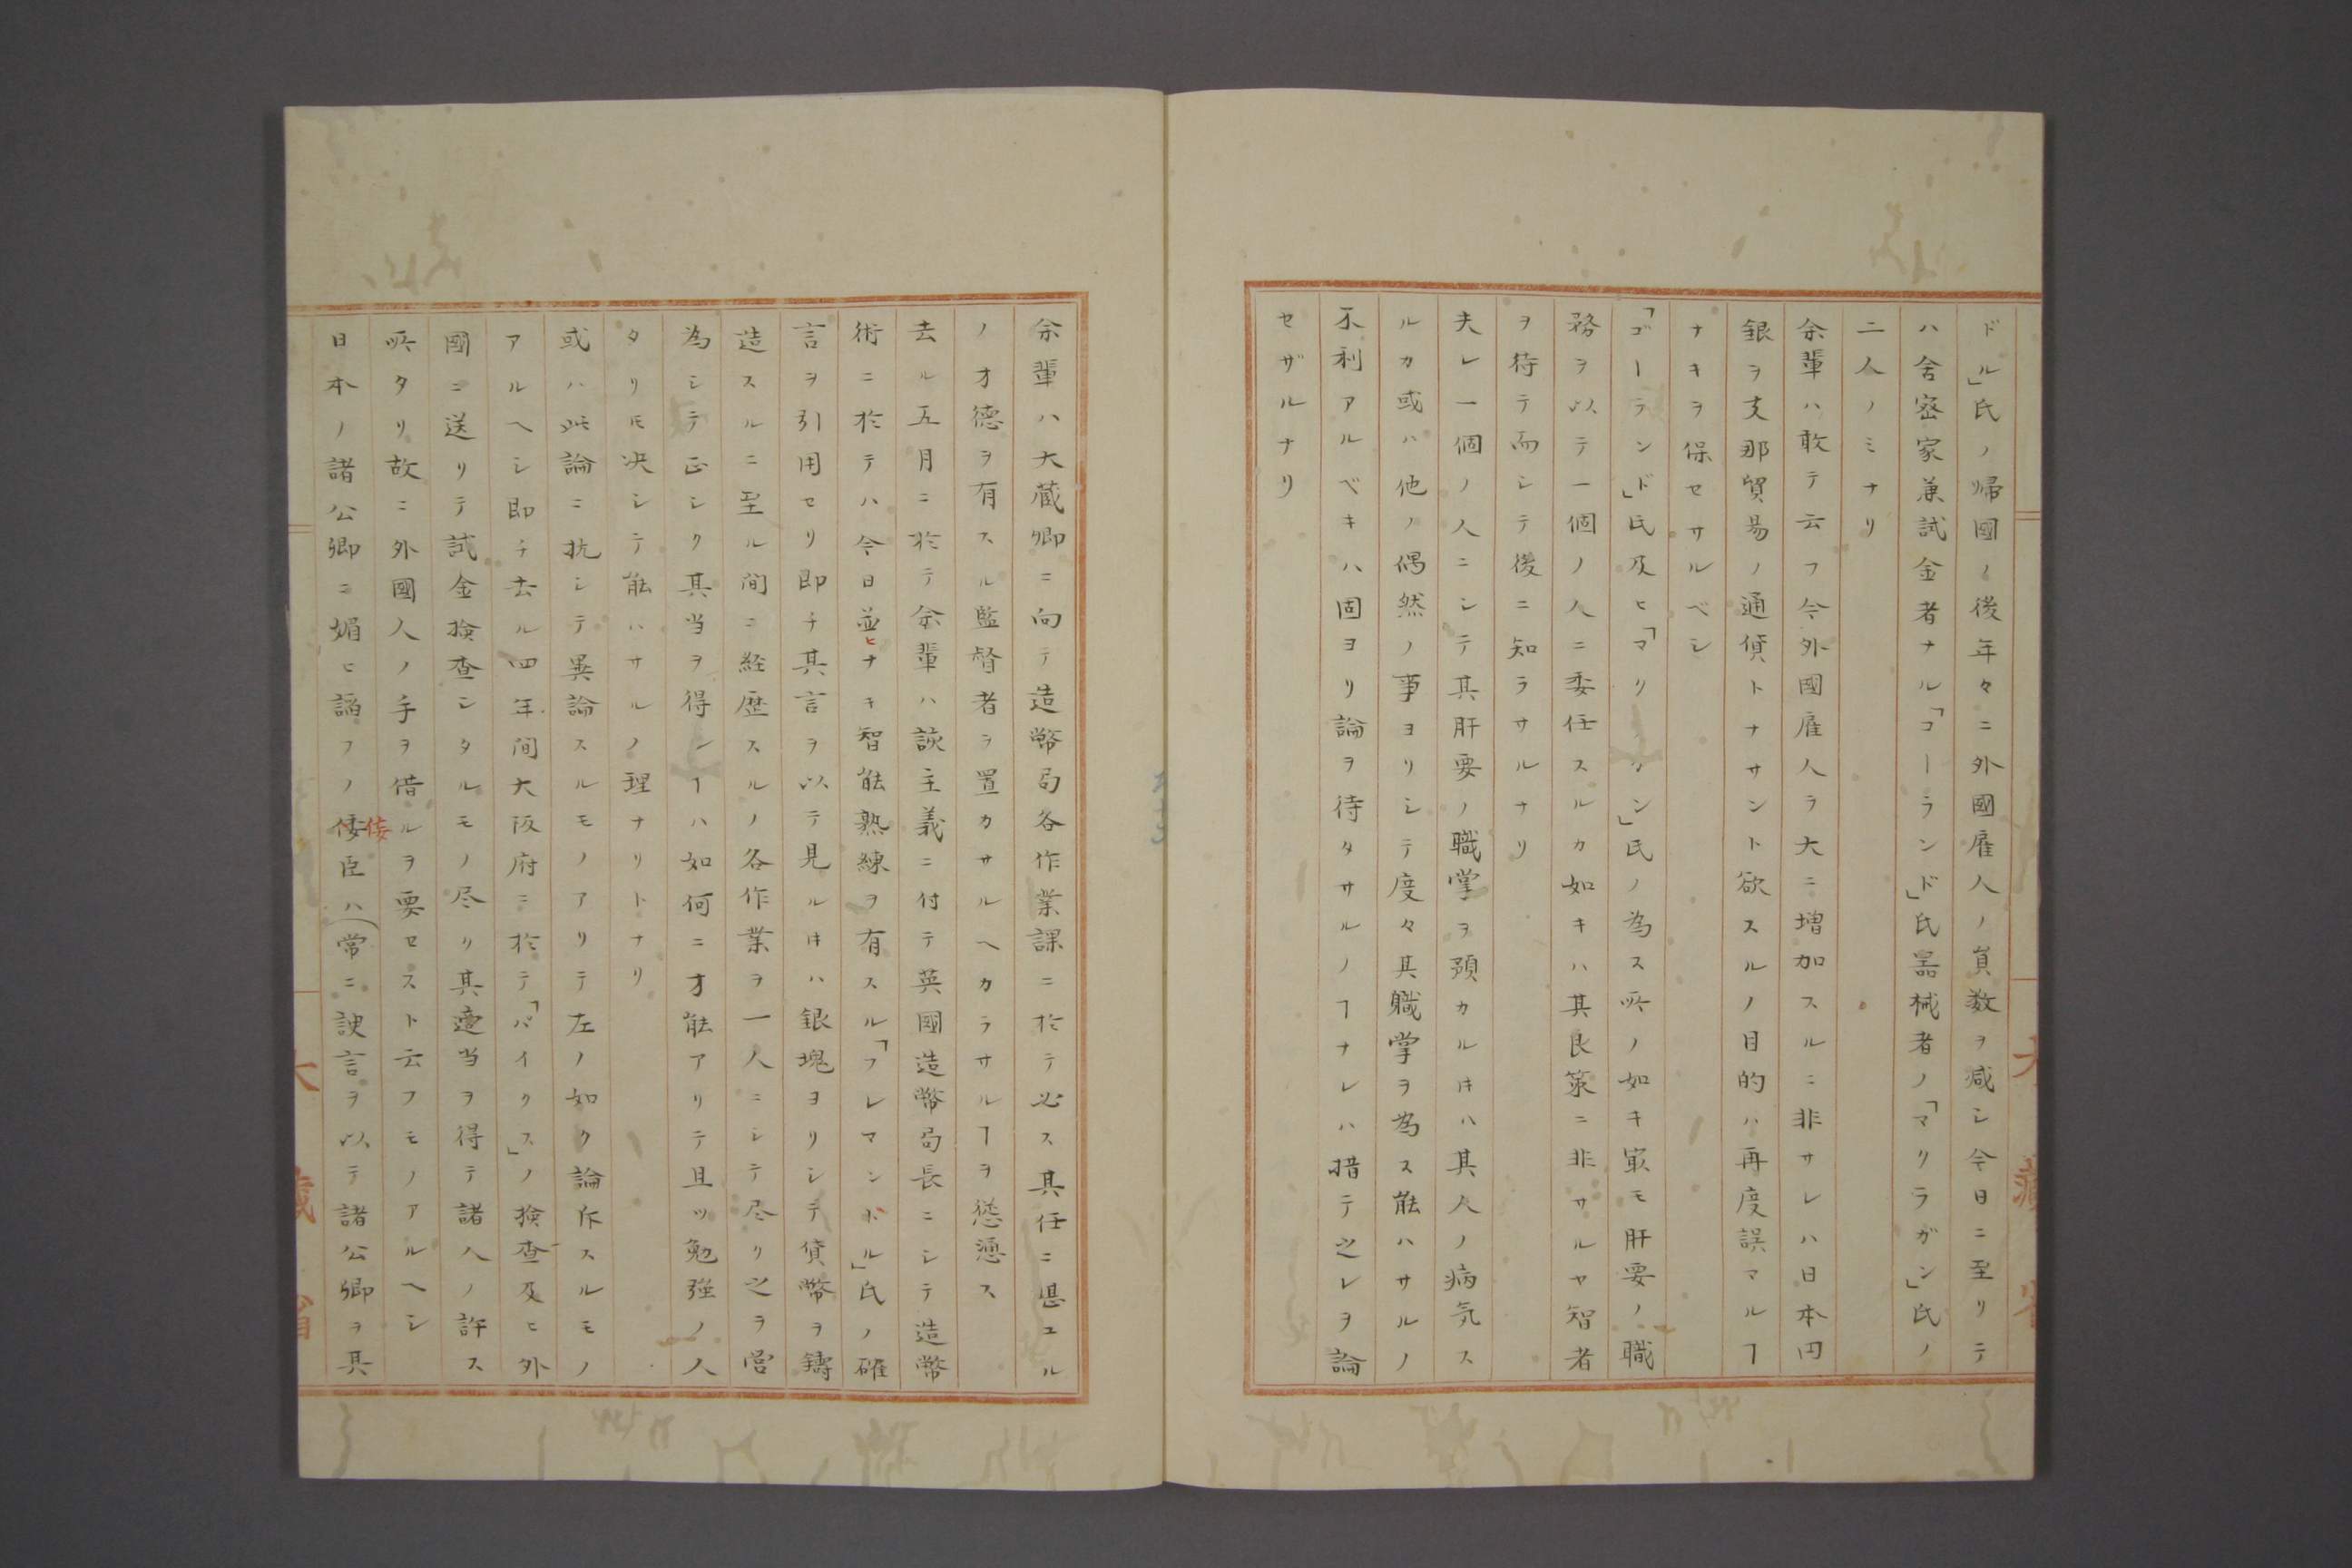 ドル」氏ノ帰國ノ後年々ニ外國雇人ノ員数ヲ減シ今日ニ至リテ
ハ舎密家兼試金者ナル「ゴーランド」氏噐械者ノ「マリラガン」氏ノ
二人ノミナリ
余輩ハ敢テ云フ今外國雇人ラ大ニ増加スルニ非サレハ日本円
銀ヲ支那貿易ノ通貨トナサント欲スルノ目的ハ再度誤マルヿ
ナキヲ保セサルベシ
「ゴーランド」氏及ヒ「マリラガン」氏ノ為ス所ノ如キ冣モ肝要ノ職
務ヲ以テ一個ノ人ニ委任スルカ如キハ其良策ニ非サルヤ智者
ヲ待テ而シテ後ニ知ラサルナリ
夫レ一個ノ人ニシテ其肝要ノ職掌ヲ預カル𪜈ハ其人ノ病気ス
ルカ或ハ他ノ偶然ノ事ヨリシテ度々其職掌ヲ為ス能ハサルノ
不利アルベキハ固ヨリ論ヲ待タサルノヿナレハ措テ之レヲ論
セザルナリ
余輩ハ大蔵卿ニ向テ造幣局各作業課ニ於テ必ス其任ニ堪ユル
ノオ德ヲ有スル監督者ヲ置カサルヘカラサルヿヲ慫慂ス
去ル五月ニ於テ余輩ハ該主義ニ付テ英國造幣局長ニシテ造幣
術ニ於テハ今日並ヒナキ智能熟練ヲ有スル「フレマンドル」氏ノ確
言ヲ引用セリ即チ其言ヲ以テ見ル𪜈ハ銀塊ヨリシテ貨幣ヲ鑄
造スルニ至ル間ニ経歴スルノ各作業ヲ一人ニシテ尽リ之ヲ営
為シテ正シク其当ヲ得ンヿハ如何ニ才能アリテ且ツ勉強ノ人
タリ𪜈决シテ能ハサルノ理ナリトナリ
或ハ此論ニ抗シテ異論スルモノアリテ左ノ如ク論斥スルモノ
アルヘシ即チ去ル四年間大阪府ニ於テ「パイクス」ノ撿査及ヒ外
國ニ送リテ試金撿査シタルモノ尽リ其適当ヲ得テ諸人ノ許ス
所タリ故ニ外國人ノ手ヲ借ルヲ要セスト云フモノアルヘシ
日本ノ諸公卿ニ媚ヒ謟フノ倭臣ハ常ニ諛言ヲ以テ諸公卿ヲ其
大藏省